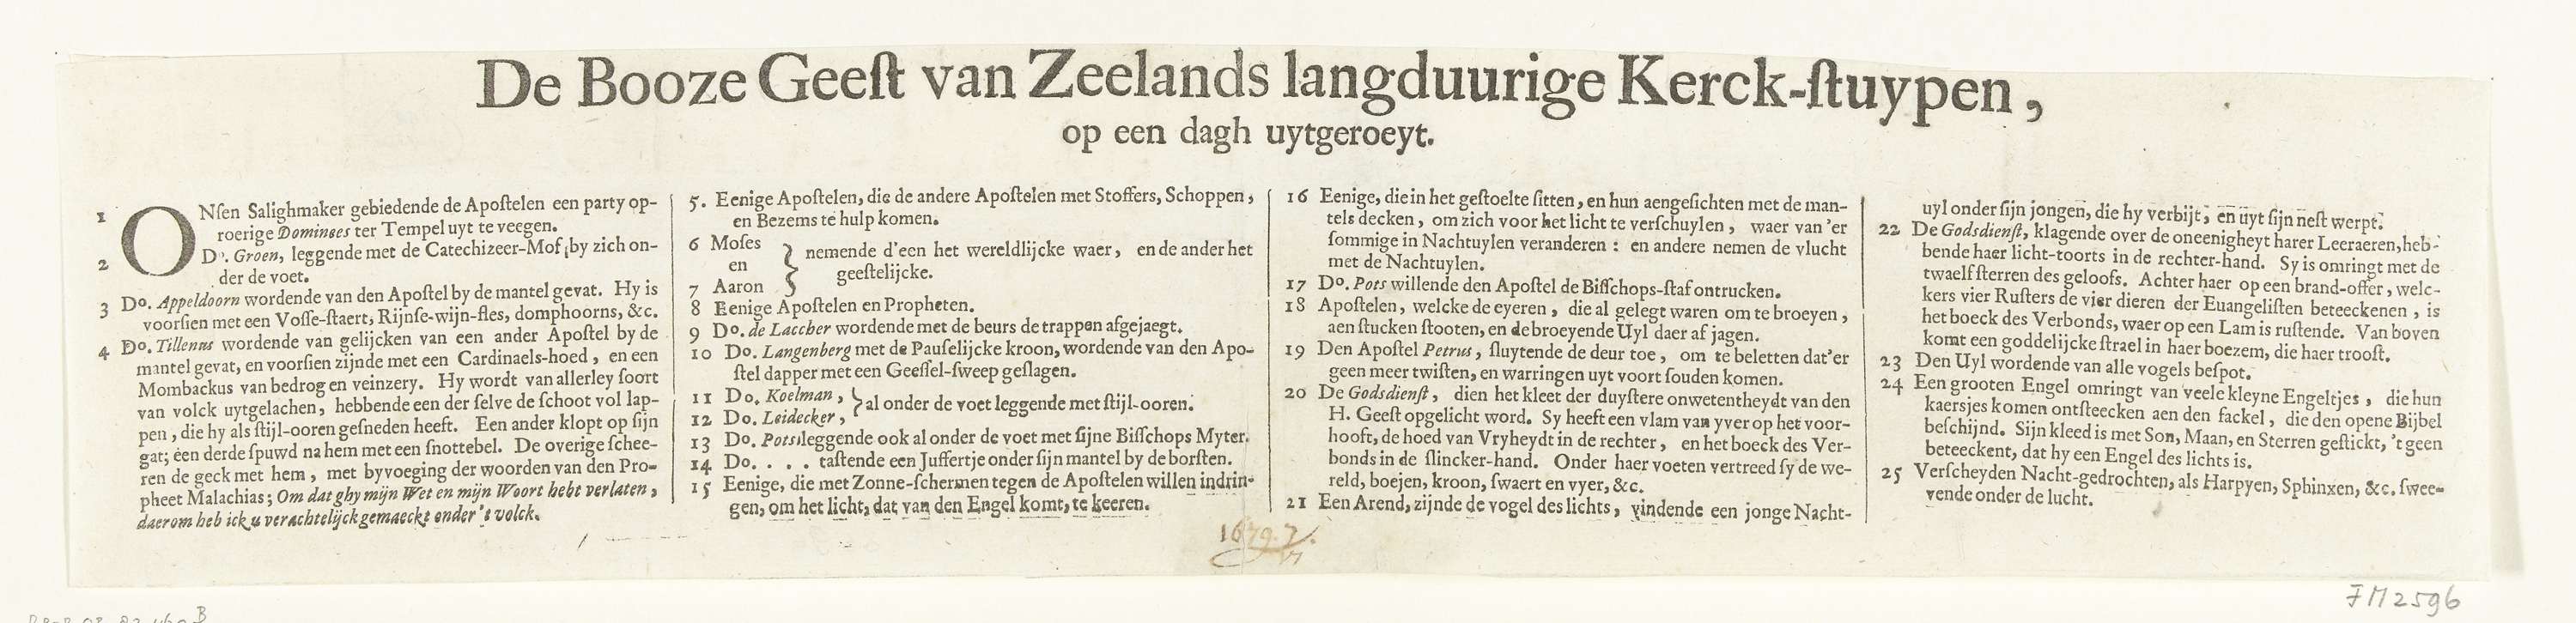 De Booze Geeſt van Zeelands langduurige Kerck-ſtuypen,
op een dagh uytgeroeyt.
1 ONſen Salighmaker gebiedende de Apoſtelen een party op-
roerige Dominees ter Tempel uyt te veegen.
2 Do. Groen, leggende met de Catechizeer-Mof, by zich on-
der de voet.
3 Do. Appeldoorn wordende van den Apoſtel by de mantel gevat. Hy is
voorſien met een Voſſe-ſtaert, Rijnſe-wijn-fles, domphoorns, &c.
4 Do. Tillenus wordende van gelijcken van een ander Apoſtel by de
mantel gevat, en voorſien zijnde met een Cardinaels-hoed, en een
Mombackus van bedrog en veinzery. Hy wordt van allerley ſoort
van volck uytgelachen, hebbende een der ſelve de ſchoot vol lap-
pen, die hy als ſtijl-ooren geſneden heeft. Een ander klopt op ſijn
gat; een derde ſpuwd na hem met een ſnottebel. De overige ſchee-
ren de geck met hem, met byvoeging der woorden van den Pro-
pheet Malachias; Om dat ghy mijn Wet en mijn Woort hebt verlaten,
daerom heb ick u verachtelijck gemaeckt onder 't volck.
5. Eenige Apoſtelen, die de andere Apoſtelen met Stoffers, Schoppen,
en Bezems te hulp komen.
6 Moſes
en
7 Aaron
} nemende d'een het wereldlijcke waer, en de ander het
geeſtelijcke.
8 Eenige Apoſtelen en Propheten.
9 Do. de Laccher wordende met de beurs de trappen afgejaegt.
10 Do. Langenberg met de Pauſelijcke kroon, wordende van den Apo-
ſtel dapper met een Geeſſel-ſweep geſlagen.
11 Do. Koelman,
12 Do. Leidecker,
} al onder de voet leggende met ſtijl-ooren.
13 Do. Pots leggende ook al onder de voet met ſijne Biſſchops Myter.
14 Do. . . . taſtende een Juffertje onder ſijn mantel by de borſten.
15 Eenige, die met Zonne-ſchermen tegen de Apoſtelen willen indrin-
gen, om het licht, dat van den Engel komt, te keeren.
16 Eenige, die in het geſtoelte ſitten, en hun aengeſichten met de man-
tels decken, om zich voor het licht te verſchuylen, waer van 'er
ſommige in Nachtuylen veranderen: en andere nemen de vlucht
met de Nachtuylen.
17 Do. Pots willende den Apoſtel de Biſſchops-ſtaf ontrucken.
18 Apoſtelen, welcke de eyeren, die al gelegt waren om te broeyen,
aen ſtucken ſtooten, en de broeyende Uyl daer af jagen.
19 Den Apoſtel Petrus, ſluytende de deur toe, om te beletten dat'er
geen meer twiſten, en warringen uyt voort ſouden komen.
20 De Godsdienſt, dien het kleet der duyſtere onwetentheydt van den
H. Geeſt opgelicht word. Sy heeft een vlam van yver op het voor-
hooft, de hoed van Vryheydt in de rechter, en het boeck des Ver-
bonds in de ſlincker-hand. Onder haer voeten vertreed ſy de we-
reld, boejen, kroon, ſwaert en vyer, &c.
21 Een Arend, zijnde de vogel des lichts, vindende een jonge Nacht-
uyl onder ſijn jongen, die hy verbijt, en uyt ſijn neſt werpt.
22 De Godsdienſt, klagende over de oneenigheyt harer Leeraeren, heb-
bende haer licht-toorts in de rechter-hand. Sy is omringt met de
twaelf ſterren des geloofs. Achter haer op een brand-offer, welc-
kers vier Ruſters de vier dieren der Euangeliſten beteeckenen, is
het boeck des Verbonds, waer op een Lam is ruſtende. Van boven
komt een goddelijcke ſtrael in haer boezem, die haer trooſt.
23 Den Uyl wordende van alle vogels beſpot.
24 Een grooten Engel omringt van veele kleyne Engeltjes, die hun
kaersjes komen ontſteecken aen den fackel, die den opene Bijbel
beſchijnd. Sijn kleed is met Son, Maan, en Sterren geſtickt, 't geen
beteeckent, dat hy een Engel des lichts is.
25 Verſcheyden Nacht-gedrochten, als Harpyen, Sphinxen, &c. ſwee-
vende onder de lucht.
1679.
FM 2596